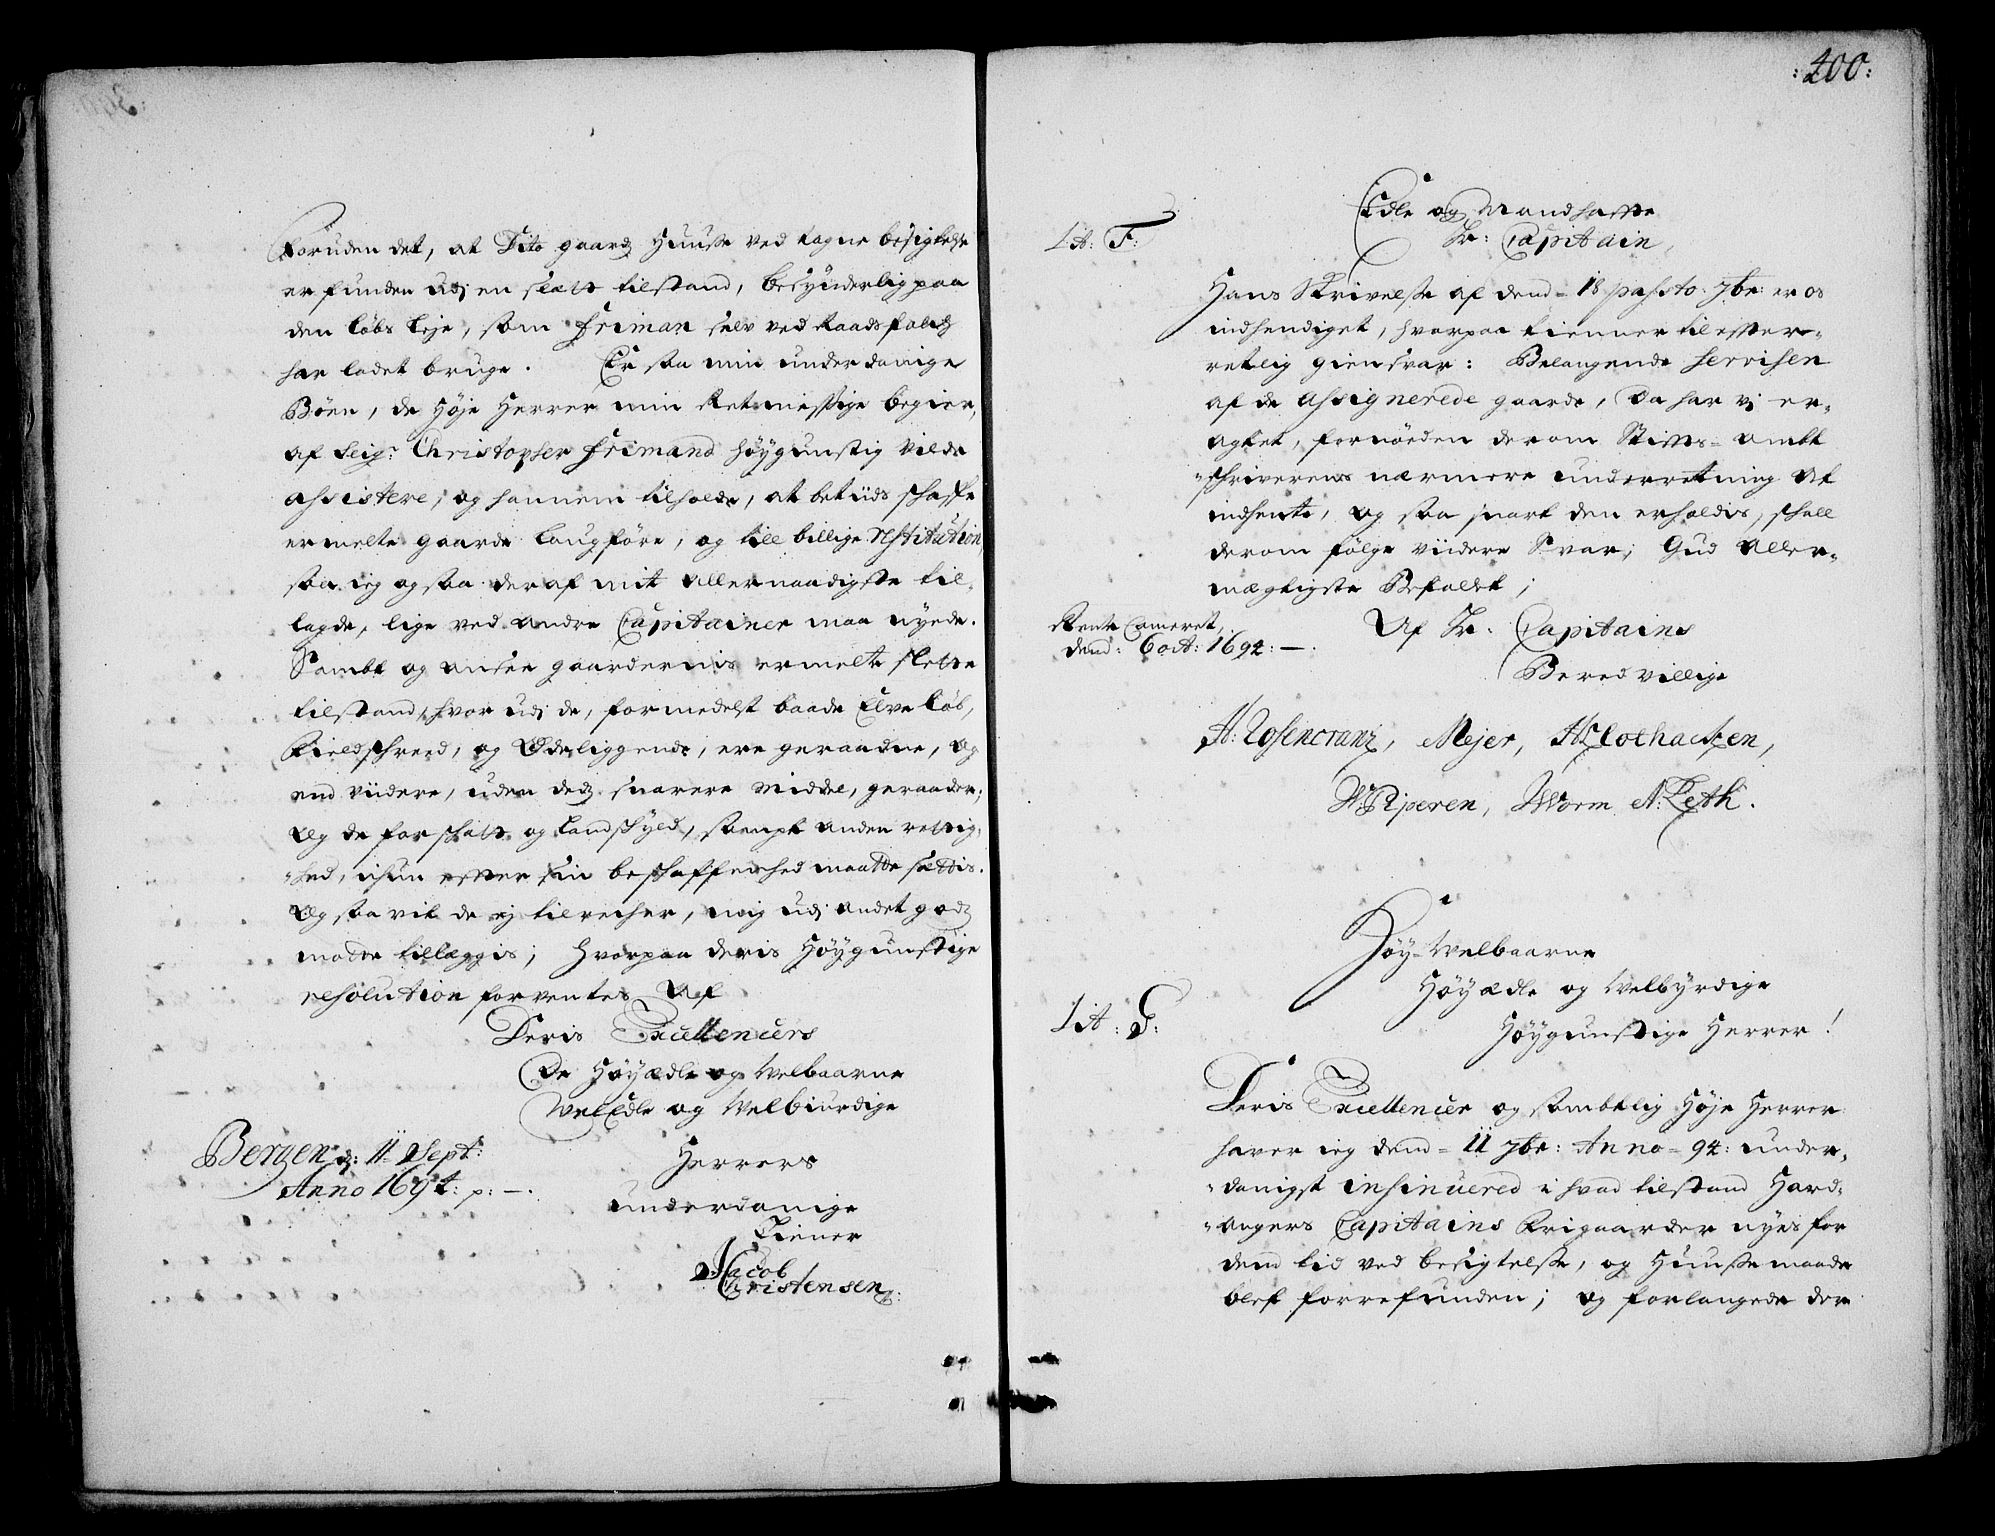 Foruden det, at Dito gaards Huuse ved tagne besigtelse
er funden udj en slett tilstand, besynderlig paa
den løbs leje, som Friman selv ved Raadsfolch
har ladet bruge. Er saa min underdanige
Bøen, de Høje Herrer min Retmessige begier,
af Seigr Christopher Frimand høygunstig vilde
assistere, og hannem tilholde, at betids schaffe
ermelte gaarde laugføre, og till billige restitution
saa ieg ogsaa deraf mit allernaadigste til-
lagde, lige ved andre Capitainer maa nyede.
Sambt og ansee gaardernis ermelte slette
tilstand, hvor udj de, formedelst baade Elve løb,
Fieldschreed, og Øde liggende, ere geraadne, og
end viidere, uden deds snarere Middel, geraader;
og de for schatt og Landschyld, sampt anden rettig-
hed, ichun efter sin beschaffenhed maatte sættis.
Og saa vit de ej tilrecher, mig udj andet gods
motte tillæggis; Hvorpaa deris Høygunstige
resolution forventes Af
Deris Excellencers
De Høyædle og Welbaarne
WelEdle og Welbiurdige
Bergen d: 11 Sept:
Anno 1694: p: —.
Herrers
underdanige
Tiener
Jacob
Christensen
:400:
Edle og Mandhaffte
Hr: Capitain,
Lit: F:
Hans Skrivelse af dend 18 passto. 7br: er os
indhendiget, hvorpaa tienner til effter-
retlig giensvar: Belangende Servisen
af de Assignerede gaarde, Da har vj er-
agtet, fornøeden derom Stiffts-ambt
schriverens nærmere underretning at
indhente, og saa snart den erholdis, schall
derom følge viidere Svar; Gud Aller-
mægtigste Befallet;
Rente Cameret,
dend: 6 oct: 1694: —.
Af Hr. Capitains
Beredvillige
H: Rosencranz, Mejer,
W: Piperen, Worm A: Leth.
Høy-Welbaarne
Høyædle og Welbyrdige
Høygunstige Herrer!
Lit: G:
Deris Excellencer og sambtlig Høje Herrer
haver ieg dend = 11 7br: Anno = 94: under-
danigst insinuered i hvad tilstand Hard-
angers Capitains Frigaarder nyes for
dend tid ved besigtelse, og Huuse maade
blef forrefunden; og forlangede der